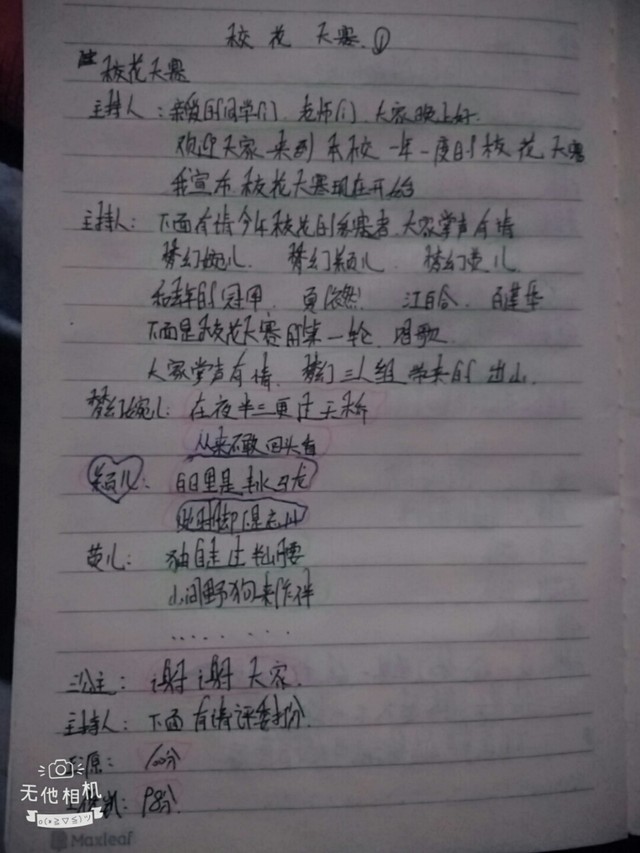 校花大赛①
校花大赛
主持人：亲爱的同学们，老师们，大家晚上好.
欢迎大家来到本校一年一度的校花大赛
我宣布校花大赛现在开始
主持人：下面有请今年校花的参赛者.大家掌声有请
梦幻婉儿、梦幻颖儿、梦幻萱儿.
和去年的冠甲、莫依然、江百合、百建华
下面是校花大赛的第一轮，唱歌.
大家掌声有情，梦幻三人组带来的出山.
梦幻婉儿：在夜半三更过天桥
从来不敢回头看
颖儿：白日里是车水马龙
此时脚下是忘川
萱儿：独自走过半山腰
山间野狗来作伴
……
三公主：谢谢大家.
主持人：下面有请评委打分.
原：100分
98分
无他相机
Maxleaf